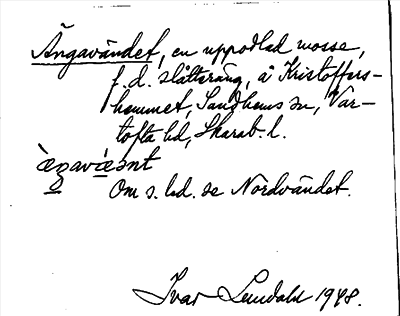 Ängavändet, en uppodlad mosse,
f. d. slåtteräng, å Kristoffers-
hemmet, Sandhems sn, Var-
tofta hd, Skarab. l.
Om s. led. se Nordvändet.
Ivar Lundahl 1948.